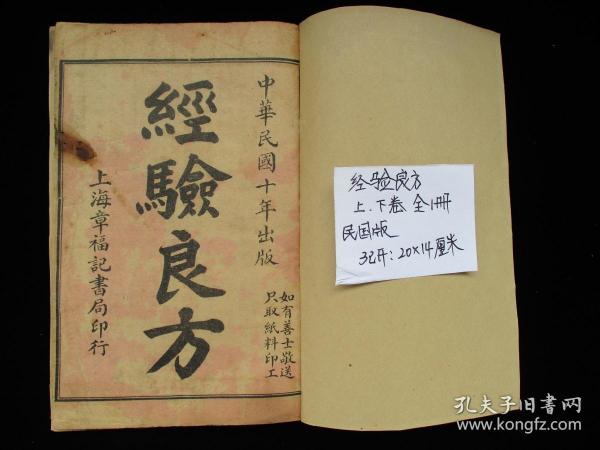 中華民國十年出版
如有善士敬送
只取紙料印工
經驗良方
上海章福記書局印行
经验良方
上.下卷 全1册
民国版
32开:20×14厘米
孔夫子旧书网
www.kongfz.com